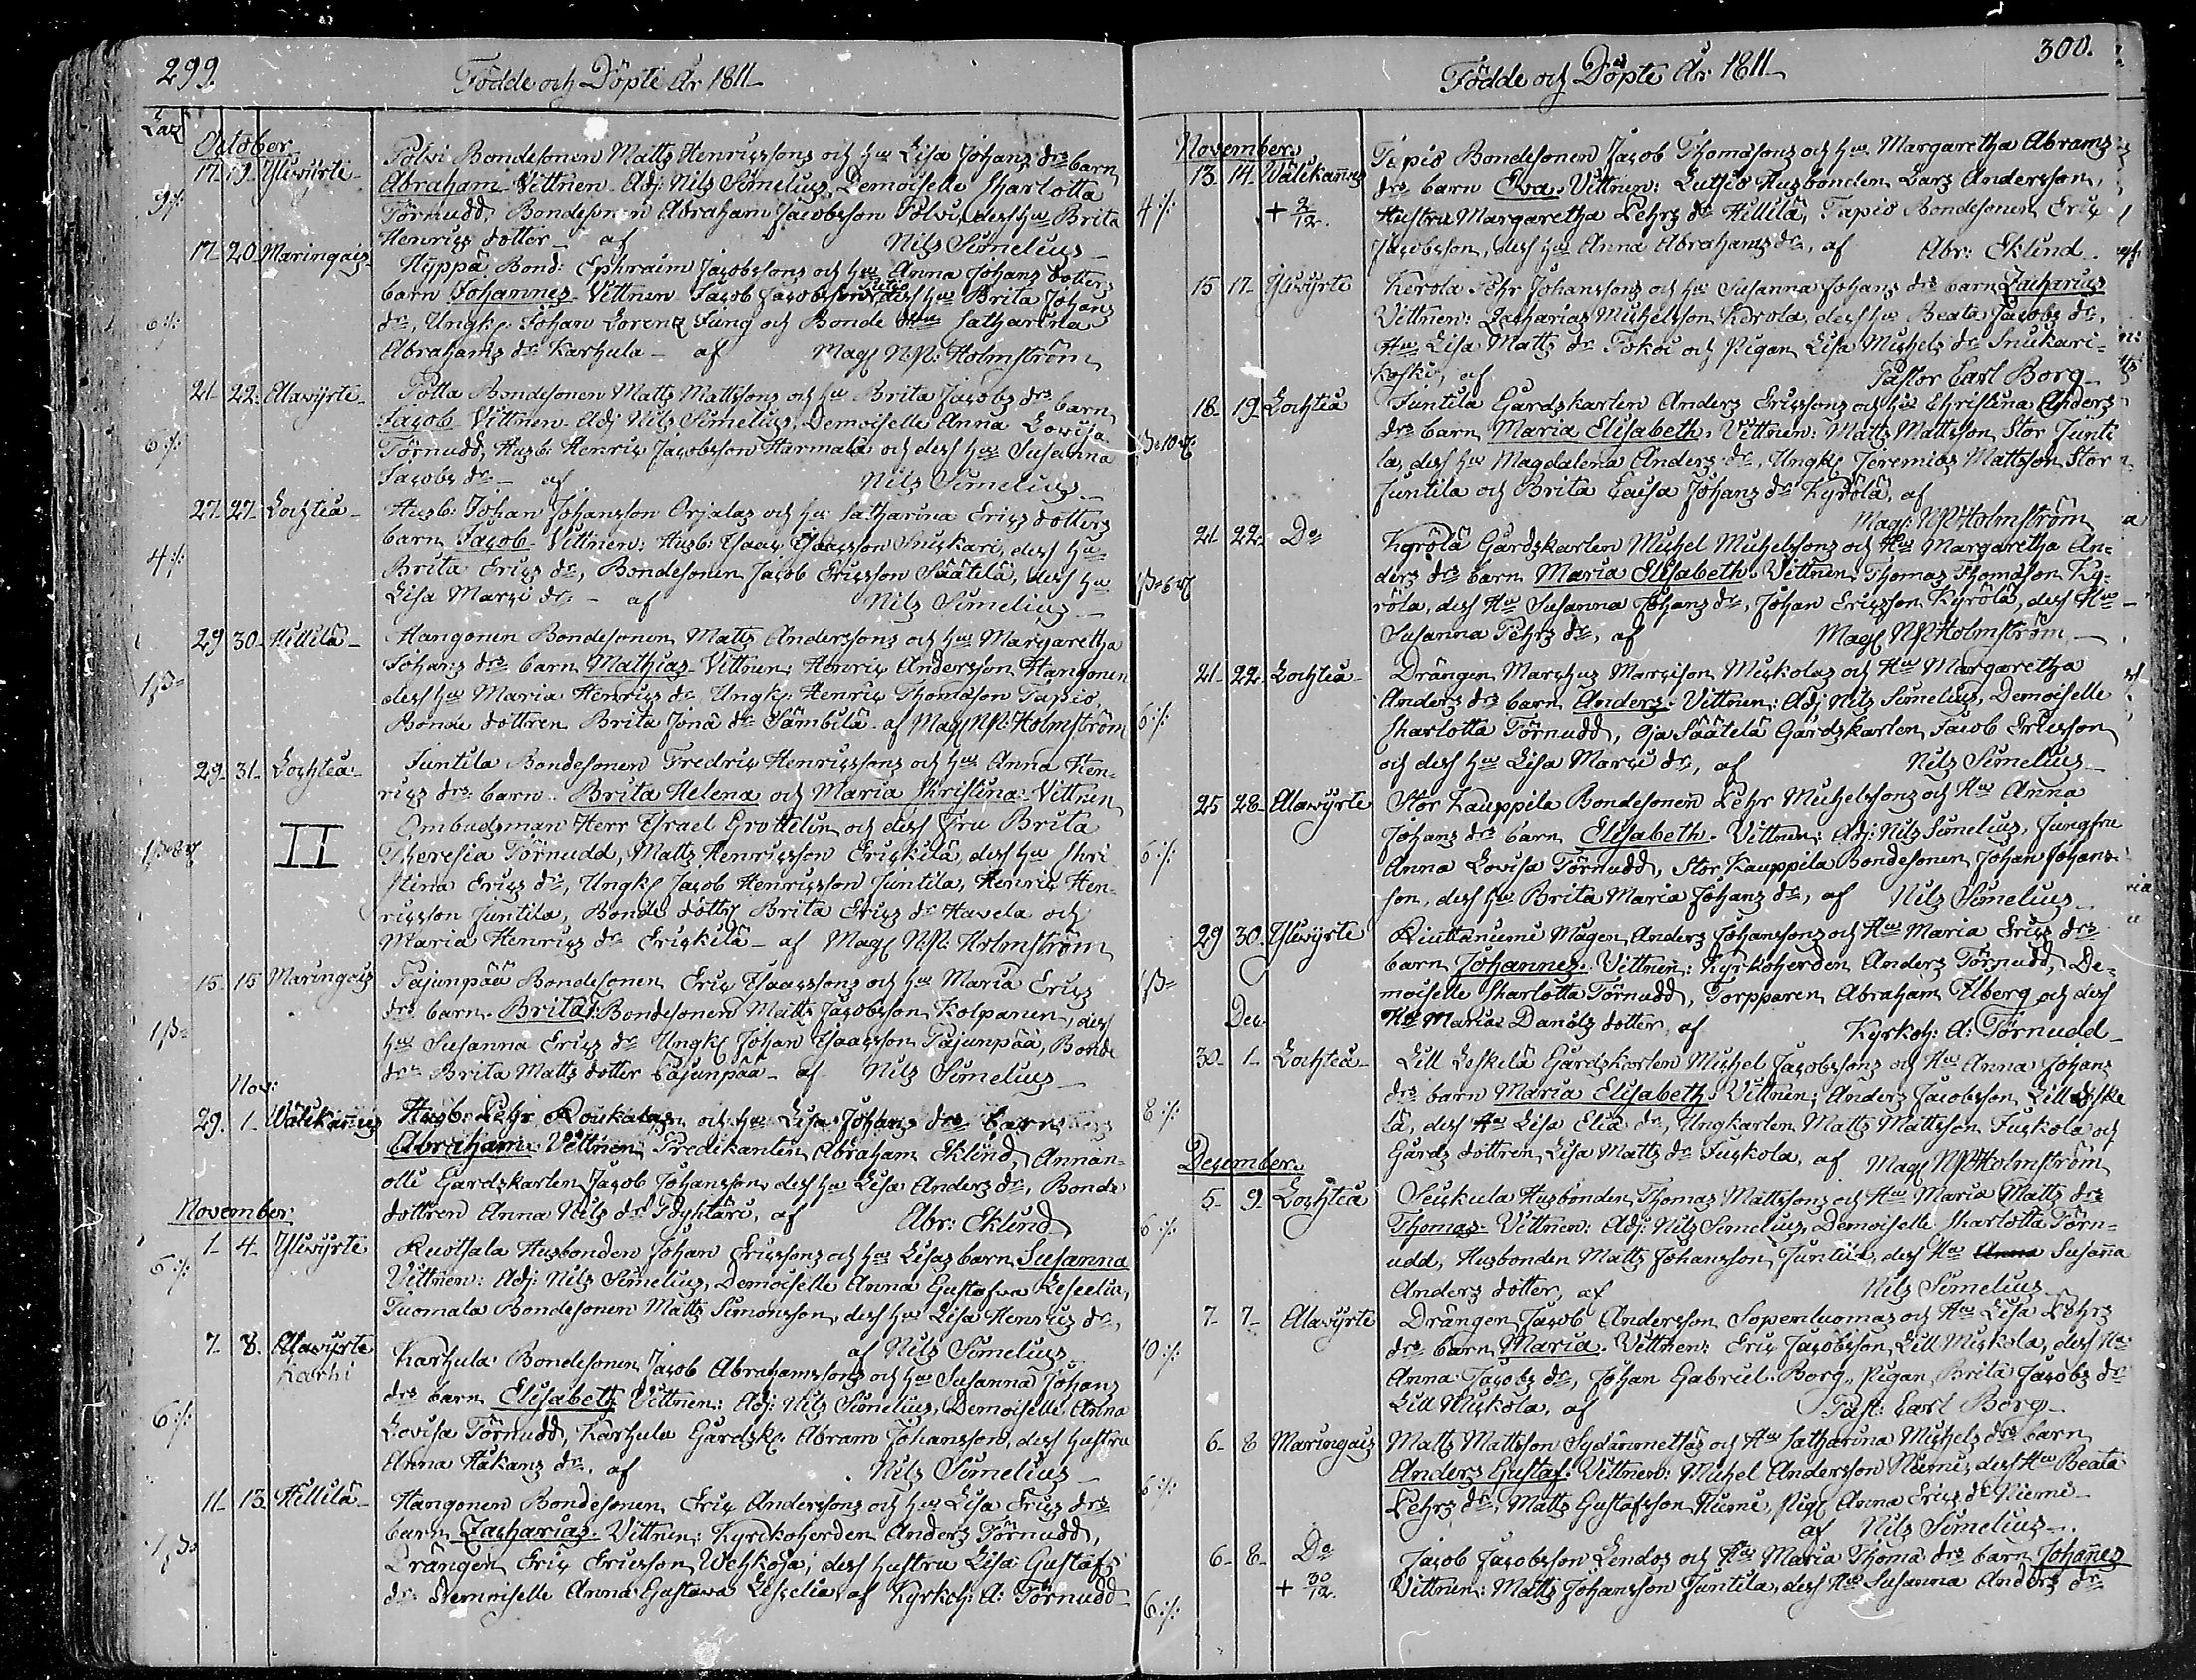 299.
Födde och Döpte År 1811
October
17. 19. Yliwÿrte Polvi Bondesonen Matts Henricssons och hu Lisa Johans drs barn
Abraham Vittnen Adj: Nils Simelius, Demoiselle Charlotta
9 ./. Törnudd, Bondesonen Abraham Jacobsson Polvi, dess hu Brita
Henrics dotter af Nils Simelius
17. 20. Maringais Hyppä Bond: Ephraim Jacobssons och hu Anna Johans dotters
barn Johannes Vittnen Jacob Jacobsson dess hu Brita Johans
6 ./. dr, Ungk. Johan Lorenz Ljung och Bonde Catharina
Abrahams dr Karhula af Mag. N.N. Holmström
21. 22. Alawÿrte Potta Bondesonen Matts Mattssons och hu Brita Jacobs drs barn
Jacob Vittnen Adj Nils Simelius, Demoiselle Anna Lovisa
6 ./. Törnudd, Husb: Henric Jacobsson Harmala och dess hu Susanna
Jacobs dr af Nils Simelius
27. 27. Lochteå Husb: Johan Johansson Orjalas och hu Catharina Erics dotters
barn Jacob Vittnen: Husb: Isaac Isaacsson Snickari, dess hu
4 ./. Brita Erics dr, Bondesonen Jacob Ericsson Säätelä, dess hu
Lisa Marci dr af Nils Simelius
29 30. Hillilä Hangonen Bondesonen Matts Anderssons och hu Margaretha
Johans drs barn Mathias Vittnen: Henric Andersson Hangonen
dess hu Maria Henrics dr, Ungk: Henric Thomasson Tapio,
Bonde dottren Brita Jona dr Sämbilä af Mag N.N: Holmström
29. 31. Lochteå Juntila Bondesonen Fredric Henricssons och hu Anna Hen-
rics drs barn Brita Helena och Maria Christina Vittnen
II Ombudsman Herr Israel Grottelin och dess Fru Brita
Theresia Törnudd, Matts Henricsson Erickilä dess hu Chri
stina Erics dr, Ungk Jacob Henricsson Juntila, Henric Hen-
ricsson Juntila, Bonde dottr Brita Erics dr Havela och
Maria Henrics dr Erickilä af Mag N.N. Holmström
15. 15 Maringais Pajunpää Bondesonen Eric Isaacssons och hu Maria Erics
drs barn Brita: Bondesonen Matts Jacobsson Kolpanen, dess
hu Susanna Erics dr Ungk Johan Isaacsson Pajunpää, Bonde
dr Brita Matts dotter Pajunpää af Nils Simelius
Nov:
29. 1. Wälikannus Husb: Pehr Roukalas och hu Lisa Johans drs barn
Abraham Vittnen Predikanten Abraham Eklund, Annan-
olli Gårdskarlen Jacob Johansson, dess hu Lisa Anders dr, Bonde
November
dottren Anna Nils dr, af Abr: Eklund
1. 4. Yliwÿrte Ruotsala Husbonden Johan Ericssons och hu Lisas barn Susanna
6 ./. Vittnen: Adj: Nils Simelius, Demoiselle Anna Gustafva Leselia,
Tuomala Bondesonen Matts Simonsson, dess hu Lisa Henrics dr,
af Nils Simelius
7. 8. Alawÿrte Karhula Bondesonen Jacob Abrahamssons och hu Susanna Johans
Karhi drs barn Elisabeth Vittnen: Adj: Nils Simelius, Demoiselle Anna
6 ./. Lovisa Törnudd, Karhula Gårdsk: Abram Johansson, dess hustru
Anna Håkans dr. af Nils Simelius
11. 13. Hillilä Hangonen Bondesonen Eric Anderssons och hu Lisa Erics drs
barn Zacharias. Vittnen: Kyrckoherden Anders Törnudd,
Drängen Eric Ericsson Wehkoja, dess hustru Lisa Gustafs
dr Demoiselle Anna Gustava Leselia, af Kyrkoh: A: Törnudd
300.
Födde och Döpte År 1811
November
13. 14. Wälikannus Tapio Bondesonen Jacob Thomasons och hu Margaretha Abrams
4 ./. drs barn Eva. Vittnen: Husbonden Lars Andersson,
+ 2/12. Hustru Margaretha Pehrs dr Hillilä, Tapio Bondesonen Eric
Jacobsson, dess hu Anna Abrahams dr, af Abr: Eklund.
15 17. Yliwÿrte Kerola Pehr Johanssons och hu Susanna Johans drs barn Zacharias
Vittnen: Zacharias Michelsson Kerola, dess hu Beata Jacobs dr,
Hu Lisa Matts dr Tokoi och Pigan Lisa Michels dr Snickari-
koski, af Pastor Carl Borg
18. 19. Lochteå Juntila Gårdskarlen Anders Ericssons och hu Christina Anders
drs barn Maria Elisabeth. Vittnen: Matts Mattsson Stor Junti
la, dess hu Magdalena Anders dr, Ungk Jeremias Mattsson Stor
Juntila och Brita Caisa Johans dr Kyrölä, af
Mag: N.N. Holmström
21. 22. Do Kyrölä Gårdskarlen Michel Michelssons och Hu Margaretha An-
ders drs barn Maria Elisabeth. Vittnen: Thomas Thomasson Ky-
rölä, dess Hu Susanna Johans dr, Johan Ericsson Kyrölä, dess Hu
Susanna Pehrs dr, af Mag N.N. Holmström
21. 22. Lochteå Drängen Marchus Marcison Mickolas och Hu Margaretha
6 ./. Anders drs barn Anders. Vittnen: Adj Nils Simelius, Demoiselle
Charlotta Törnudd, Oja Säätelä Gårdskarlen Jacob Ericsson
och dess hu Lisa Marci dr, af Nils Simelius
25 28. Alawÿrte Stor Kauppila Bondesonen Pehr Michelssons och Hu Anna
6 ./. Johans drs barn Elisabeth. Vittnen: Adj: Nils Simelius, Jungfru
Anna Lovisa Törnudd, Stor Kauppila Bondesonen Johan Johans-
son, dess hu Brita Maria Johans dr, af Nils Simelius
29 30. Yliwÿrte Riuttaniemi Mågen Anders Johanssons och Hu Maria Erics drs
barn Johannes. Vittnen: Kyrkoherden Anders Törnudd, De-
moiselle Charlotta Törnudd, Torpparen Abraham Ulberg och dess
Dec. Hu Maria Daniels dotter, af Kyrkoh: A: Törnudd
30. 1. Lochteå Lill Leskelä Gårdskarlen Michel Jacobssons och Hu Anna Johans
8 ./. drs barn Maria Elisabeth. Vittnen: Anders Jacobsson Lill Leske
lä, dess Hu Lisa Elia dr, Ungkarlen Matts Mattsson Juckola och
December
Gårds dottren Lisa Matts dr Juckola, af Mag N.N. Holmström
5. 9. Lochteå Seikula Husbonden Thomas Mattssons och Hu Maria Matts drs
6 ./. Thomas Vittnen: Adj: Nils Simelius, Demoiselle Charlotta Törn-
udd, Husbonden Matts Johansson Juntila, dess Hu Anna Susanna
Anders dotter, af Nils Simelius
7. 7. Alawÿrte Drängen Jacob Andersson Sopenluomas och Hu Lisa Pehrs
10 ./. drs barn Maria. Vittnen: Eric Jacobsson Lill Mickola, dess Hu
Anna Jacobs dr, Johan Gabriel Borg, Pigan Brita Jacobs dr
Lill Mickola, af Past: Carl Borg
6. 8 Maringais Matts Mattsson Sydänmettäs och Hu Catharina Michels drs barn
6 ./. Anders Gustaf. Vittnen: Michel Andersson Niemi, dess Hu Beata
Pehrs dr, Matts Gustafsson Niemi, Pig Anna Erics dr Niemi
af Nils Simelius
6. 8. Do Jacob Jacobsson Lendos och Hu Maria Thoma drs barn Johannes
6 ./. + 30/12. Vittnen: Matts Johansson Juntila, dess Hu Susanna Anders dr